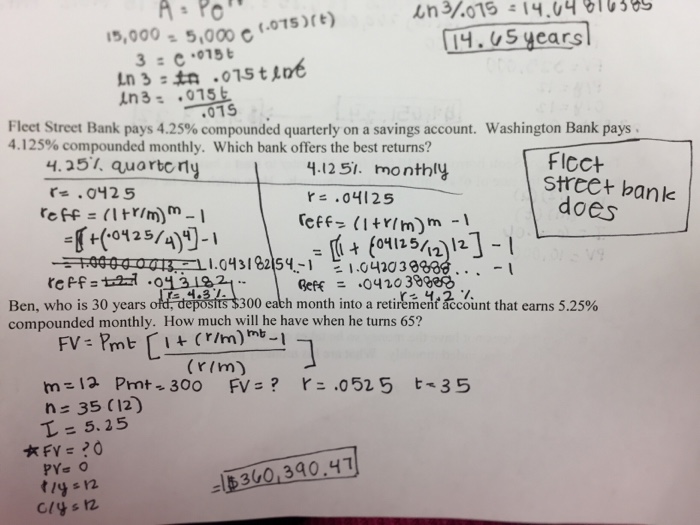 A = Pe^rt
15,000 = 5,000 e^(.075)(t)
3 = e^.075t
ln 3 = .075t lne
ln3 = .075t
.075
ln3/.075 = 14.64816385
14.65 years
Fleet Street Bank pays 4.25% compounded quarterly on a savings account. Washington Bank pays
4.125% compounded monthly. Which bank offers the best returns?
4.25% quarterly
r = .0425
reff = (1+r/m)^m - 1
= [1+(.0425/4)^4] - 1
1.043182154 - 1
reff = .043182...
r = 4.3%
4.125% monthly
r = .04125
reff = (1+r/m)^m - 1
= [1 + (.04125/12)^12] - 1
= 1.042038988... - 1
Reff = .042038988
r = 4.2%
Fleet
street bank
does
Ben, who is 30 years old, deposits $300 each month into a retirement account that earns 5.25%
compounded monthly. How much will he have when he turns 65?
FV = Pmt [1 + (r/m)^mt - 1]
(r/m)
m = 12 Pmt = 300 FV = ? r = .0525 t = 35
n = 35(12)
I = 5.25
★ FV = ? 0
PV = 0
P/y = 12
C/y = 12
= $360,390.47